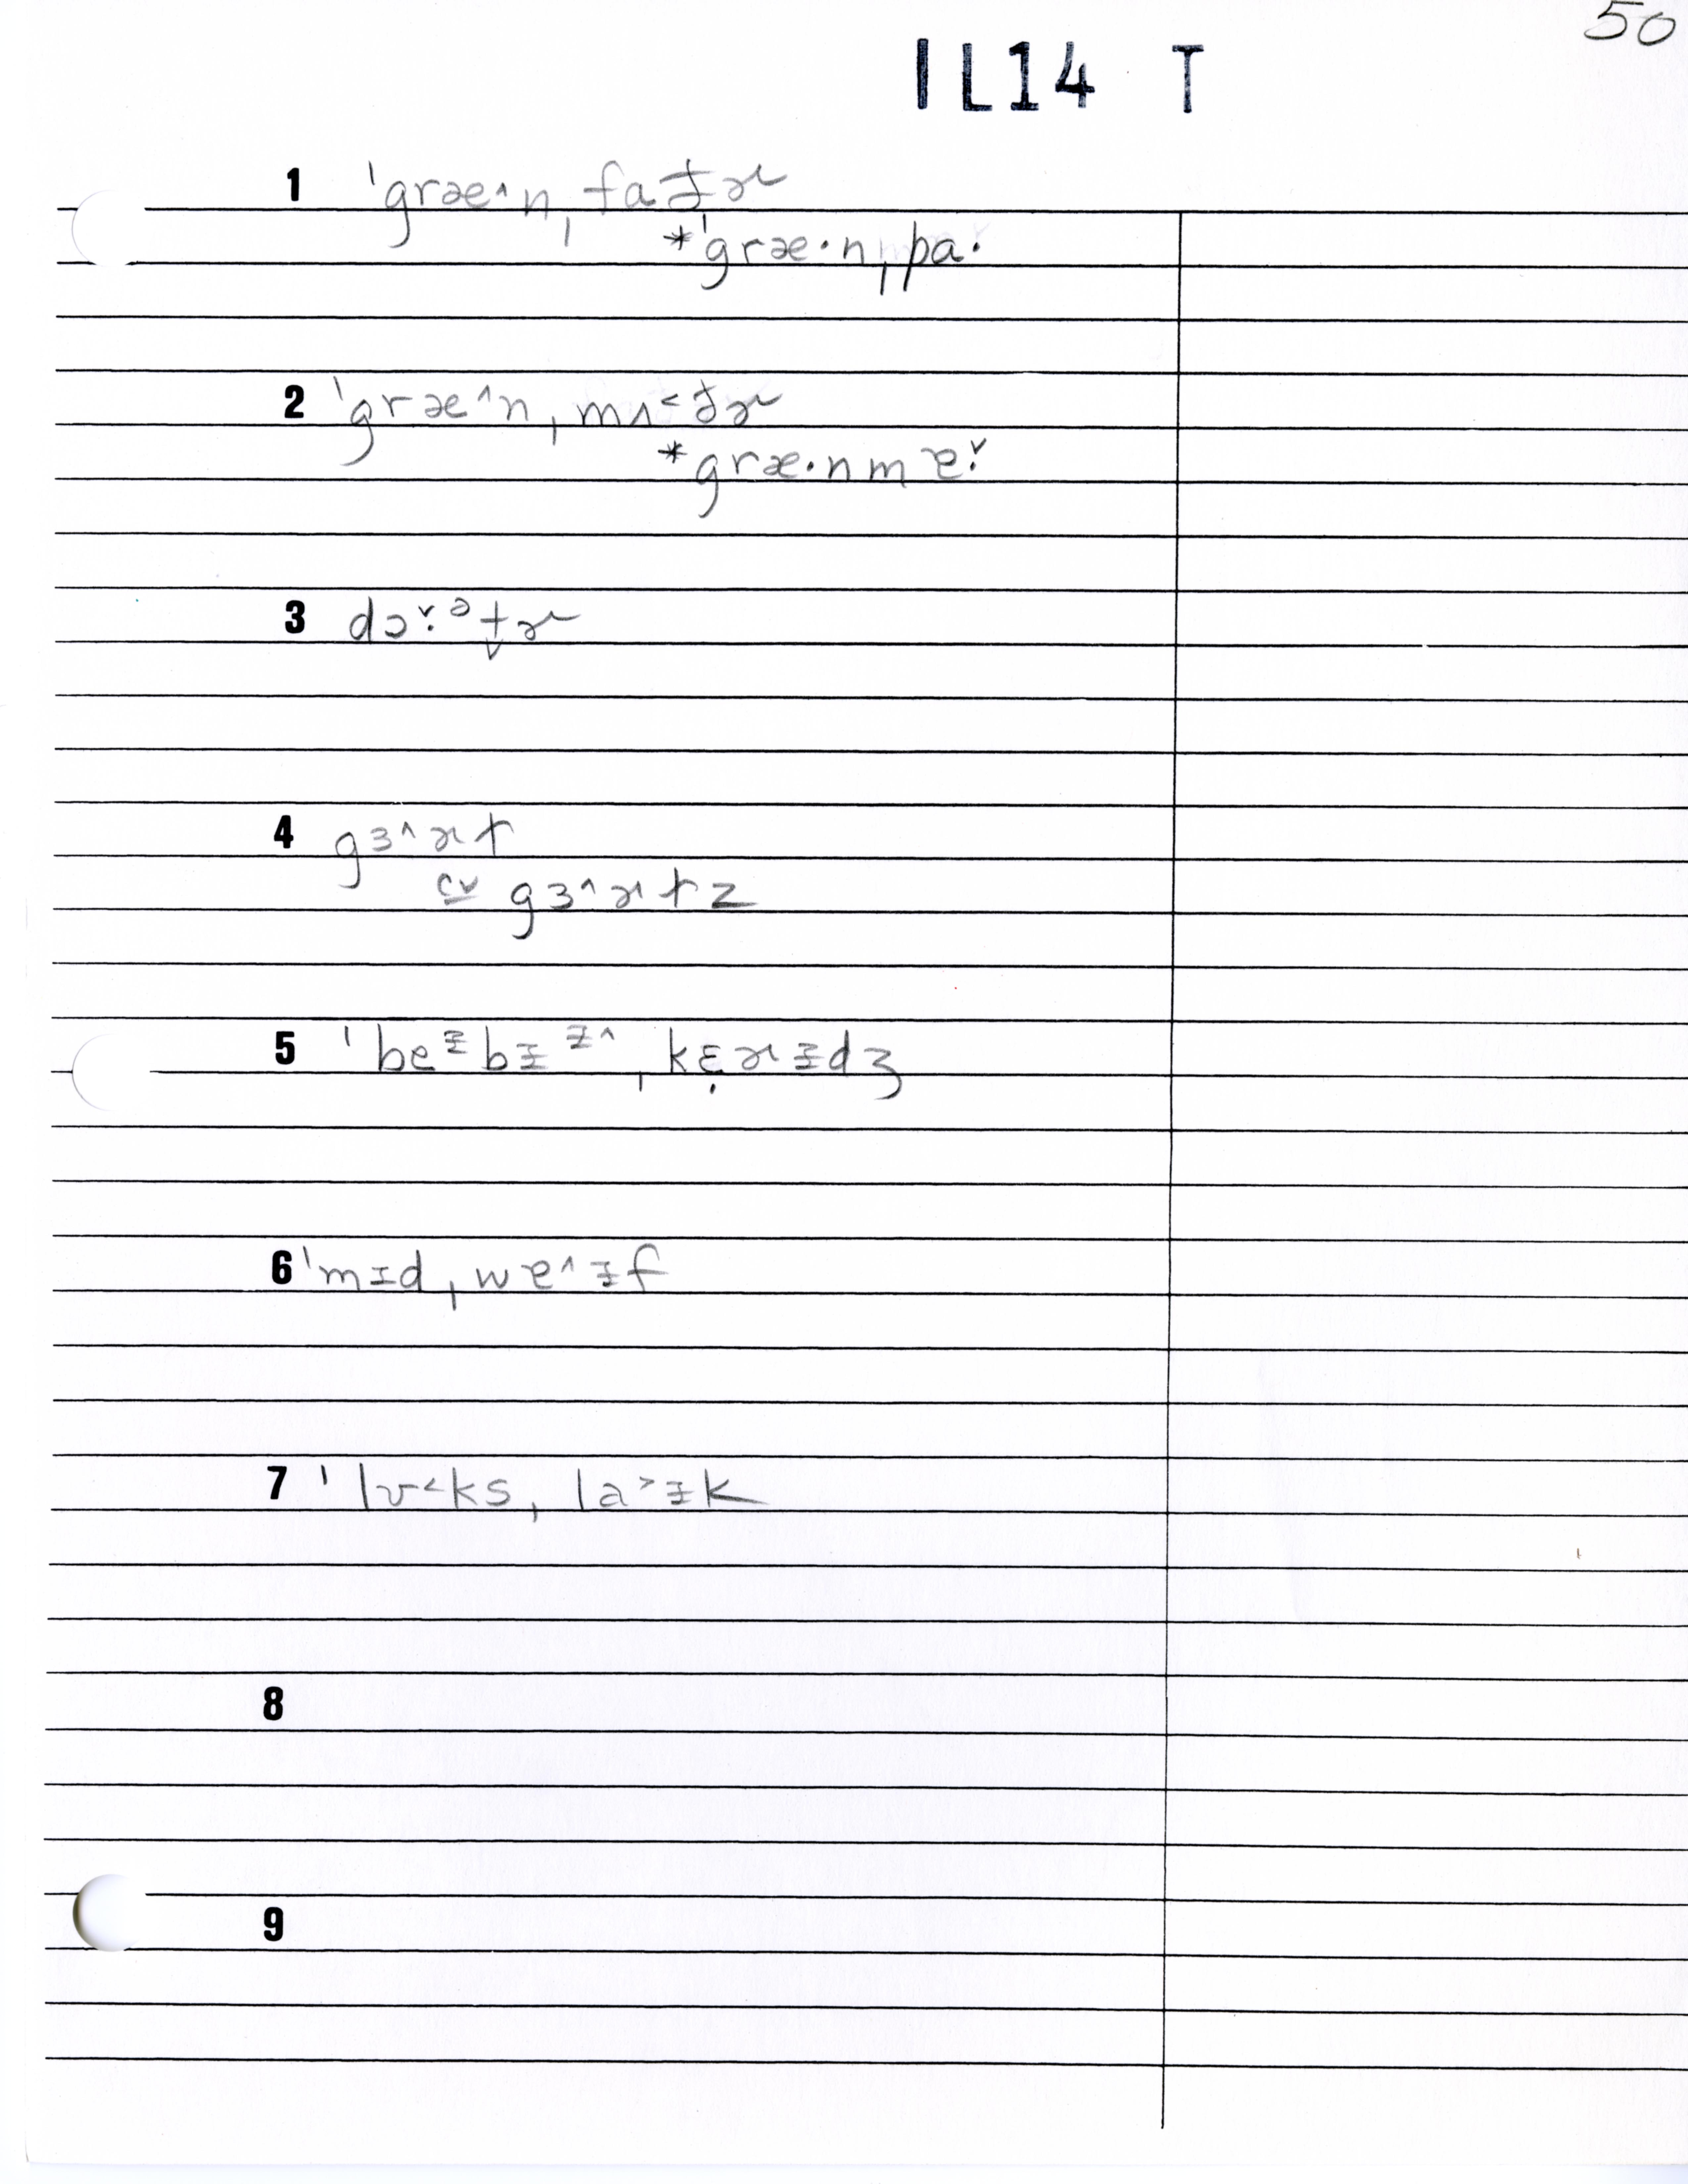 50
IL14 T
1 ˈgræ^nˌfaðɚ
*ˈgræ·nˌpa·
2 ˈgræ^nˌmʌ˂ðɚ
*græ·nmɐ·˅
3 dɔ·˅ᵊt̬ɚ
4 gɜ^ɚɫ
cv gɜ^ɚɫz
5 ˈbeᵻbɪᵻ^ˌkɛ̣ɚᵻdʒ
6 ˈmɪdˌwɐ^ᵻf
7 ˈlʊ˂ksˌla˃ᵻk
8
9